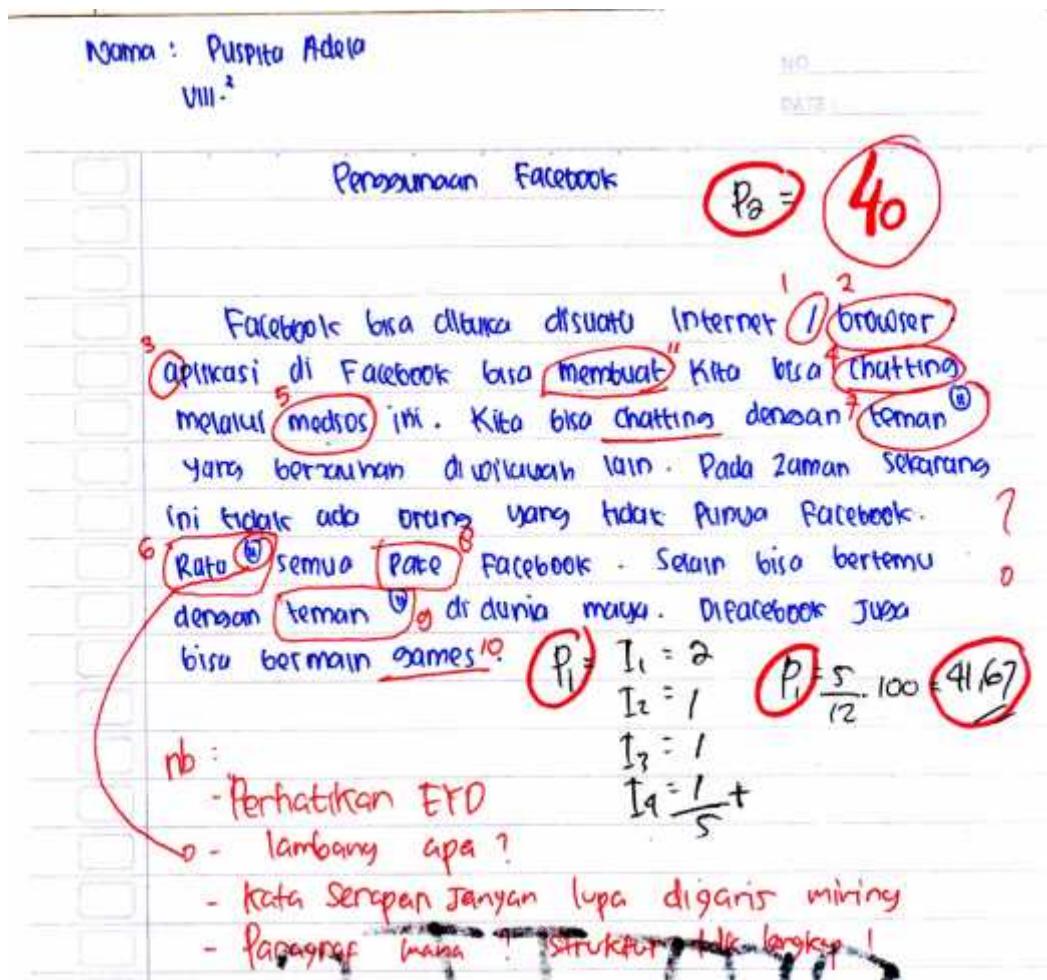 Nama : Puspita Adela
VIII.²
NO
DATE :
Penggunaan Facebook
P2 = 40
1 2
Facebook bisa dibuka disuatu Internet / browser
3 aplikasi di Facebook bisa membuat 11 Kita bisa 4 chatting
melalui 5 medsos ini. Kita bisa chatting dengan 7 teman (")
yang berjauhan diwilayah lain. Pada Zaman sekarang
ini tidak ada orang yang tidak Punya Facebook. ?
6 Rata (") semua Pake 8 Facebook. Selain bisa bertemu
dengan teman (") 9 di dunia maya. Difacebook Juga
bisa bermain games 10.
P1 = I1 = 2
I2 = 1
I3 = 1
I4 = 1 +
5
P1 = 5/12 . 100 = 41,67
nb :
- Perhatikan EYD
- lambang apa ?
- Kata Serapan Jangan lupa digaris miring
- Paragraf mana ? Struktur tdk lengkap !